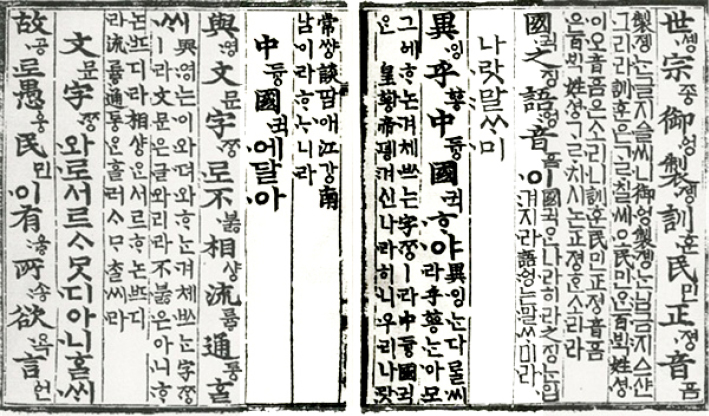 世솅宗조ᇰ御ᅌᅥᆼ製졩訓훈民민正져ᇰ音ᅙᅳᆷ
製졩ᄂᆞᆫ글지ᅀᅳᆯ씨니御ᅌᅥᆼ製졩ᄂᆞᆫ님금지ᅀᅳ샨
그리라訓훈은ᄀᆞᄅᆞ칠씨오民민ᄋᆞᆫ百ᄇᆡᆨ姓셔ᇰ
이오音ᅙᅳᆷ은소리니訓훈民민正져ᇰ音ᅙᅳᆷ
은百ᄇᆡᆨ姓셔ᇰᄀᆞᄅᆞ치시논正져ᇰᄒᆞᆫ소리라
國귁之징語ᅌᅥᆼ音ᅙᅳᆷ이國귁ᄋᆞᆫ나라히라之징ᄂᆞᆫ입
겨지라語ᅌᅥᆼ는말ᄊᆞ미라
나랏말ᄊᆞ미
異잉乎ᅘᅩᆼ中듀ᇰ國귁ᄒᆞ야異잉ᄂᆞᆫ다ᄅᆞᆯ씨
라乎ᅘᅩᆼᄂᆞᆫ아모
그에ᄒᆞ논겨체ᄡᅳ는字ᄍᆞᆼㅣ라中듀ᇰ國귁
ᄋᆞᆫ皇ᅘᅪᇰ帝뎽겨신나라히니우리나랏
常쌰ᇰ談땀애江가ᇰ南
남이라ᄒᆞᄂᆞ니라
中듀ᇰ國귁에달아
與영文문字ᄍᆞᆼ로不부ᇙ相샤ᇰ流류ᇢ通토ᇰᄒᆞᆯ
ᄊᆡ與영는이와뎌와ᄒᆞ논겨체ᄡᅳ는字ᄍᆞᆼ
ㅣ라文문은글와리라不부ᇙ은아니ᄒᆞ
논ᄠᅳ디라相샤ᇰᄋᆞᆫ서르ᄒᆞ논ᄠᅳ디
라流류ᇢ通토ᇰᄋᆞᆫ흘러ᄉᆞᄆᆞᄎᆞᆯ씨라
文문字ᄍᆞᆼ와로서르ᄉᆞᄆᆞᆺ디아니ᄒᆞᆯᄊᆡ
故공로愚ᅌᅮᆼ民민이有ᅌᅮᇢ所송欲욕言언